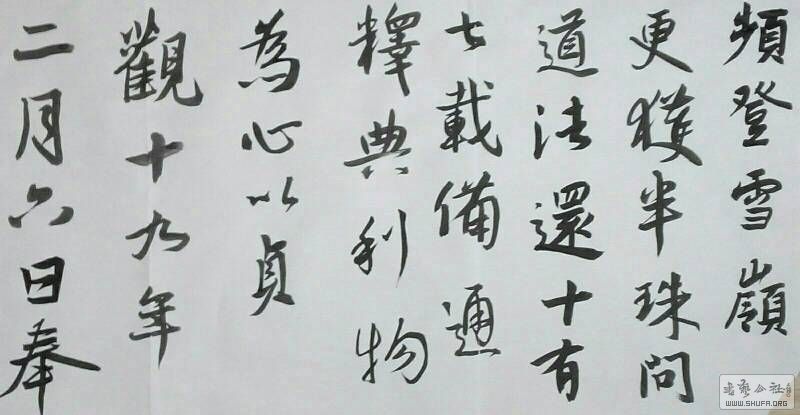 頻登雪嶺
更獲半珠問
道法還十有
七載備通
釋典利物
為心以貞
觀十九年
二月六日奉
书艺公社
WWW.SHUFA.ORG